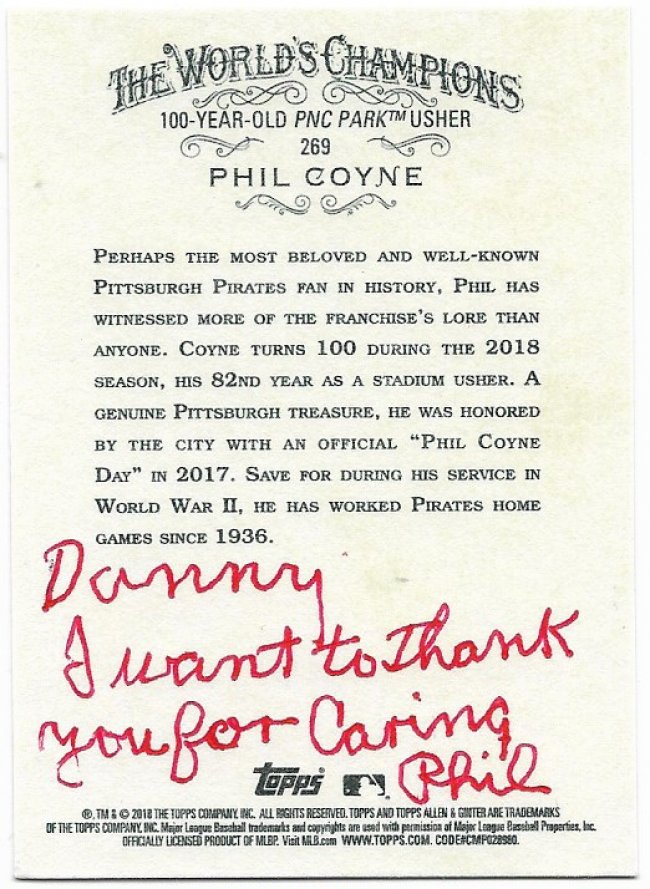 THE WORLD'S CHAMPIONS
100-YEAR-OLD PNC PARK™ USHER
269
PHIL COYNE
PERHAPS THE MOST BELOVED AND WELL-KNOWN
PITTSBURGH PIRATES FAN IN HISTORY, PHIL HAS
WITNESSED MORE OF THE FRANCHISE'S LORE THAN
ANYONE. COYNE TURNS 100 DURING THE 2018
SEASON, HIS 82ND YEAR AS A STADIUM USHER. A
GENUINE PITTSBURGH TREASURE, HE WAS HONORED
BY THE CITY WITH AN OFFICIAL "PHIL COYNE
DAY" IN 2017. SAVE FOR DURING HIS SERVICE IN
WORLD WAR II, HE HAS WORKED PIRATES HOME
GAMES SINCE 1936.
Danny
I want to Thank
you for Caring
Phil
topps
®, TM & © 2018 THE TOPPS COMPANY, INC. ALL RIGHTS RESERVED. TOPPS AND TOPPS ALLEN & GINTER ARE TRADEMARKS
OF THE TOPPS COMPANY, INC. Major League Baseball trademarks and copyrights are used with permission of Major League Baseball Properties, Inc.
OFFICIALLY LICENSED PRODUCT OF MLBP. Visit MLB.com WWW.TOPPS.COM. CODE#CMP028980.